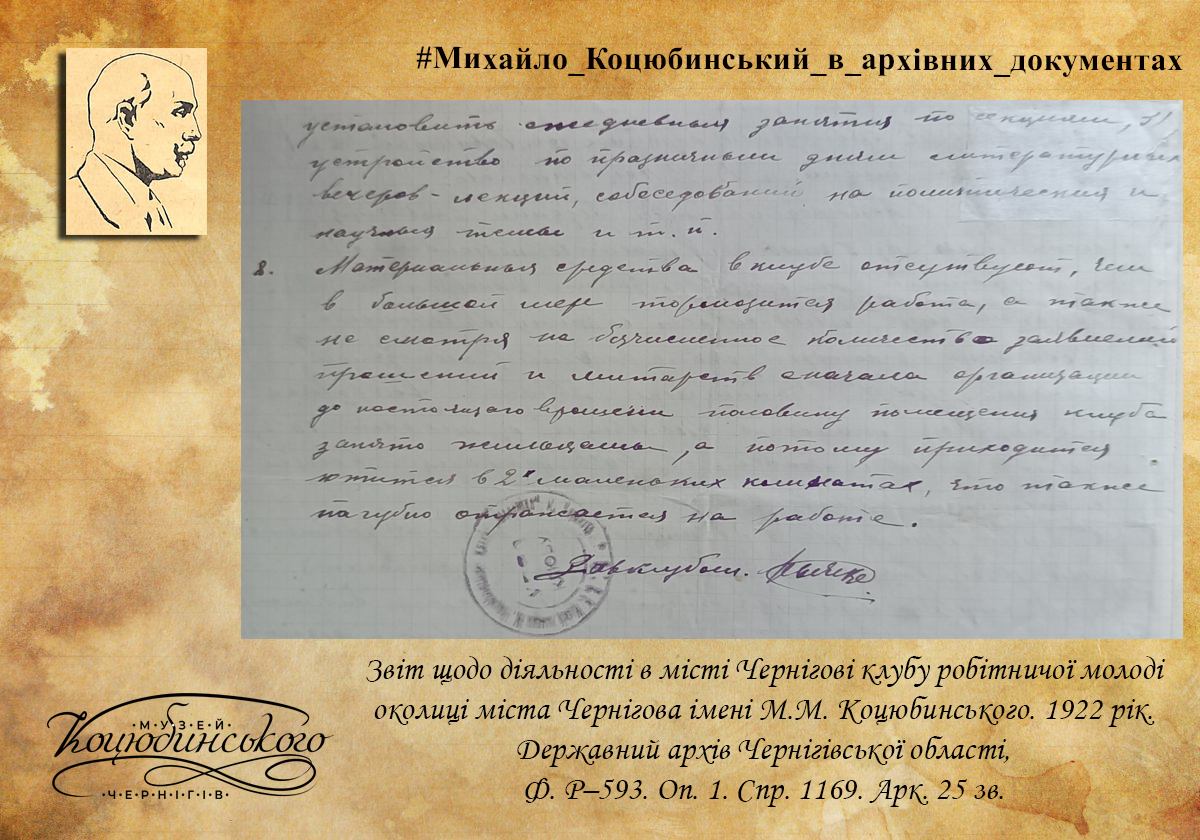 #Михайло_Коцюбинський_в_архівних_документах
установить ежедневныя занятия по секциям,
устройство по праздничным дням литературных
вечеров - лекций, собеседований на политическия и
научныя темы и т. п.
8. Материальныя средства в клубе отсутствуют, чем
в большой мере тормозится работа, а также
не смотря на безчисленное количество заявлений
прошений и митарств сначала организации
до настоящаго времени половину помещения клуба
занято жильцами, а потому приходится
ютится в 2х маленьких комнатах, что также
пагубно отражается на работе.
Завклубом.
Звіт щодо діяльності в місті Чернігові клубу робітничої молоді
околиці міста Чернігова імені М.М. Коцюбинського. 1922 рік.
Державний архів Чернігівської області,
Ф. Р–593. Оп. 1. Спр. 1169. Арк. 25 зв.
·МУЗЕЙ·
Коцюбинського
·ЧЕРНІГІВ·